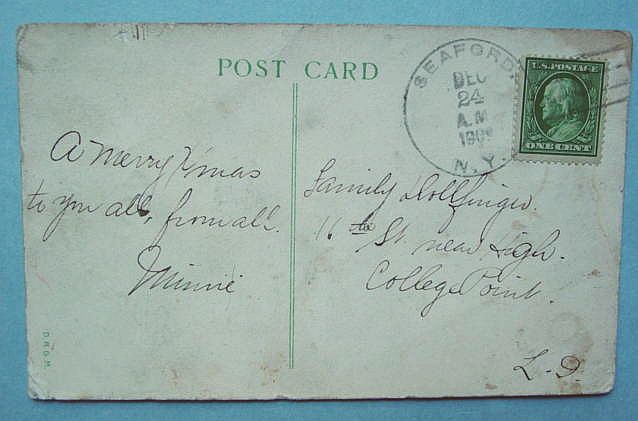 POST CARD
SEAFORD
DEC
24
A.M
190
N.Y.
U.S. POSTAGE
ONE CENT
A Merry Xmas
to you all, from all.
Minnie
Family Dollfinger.
16th St. near High.
College Point.
L.I.
D.R.G.M.